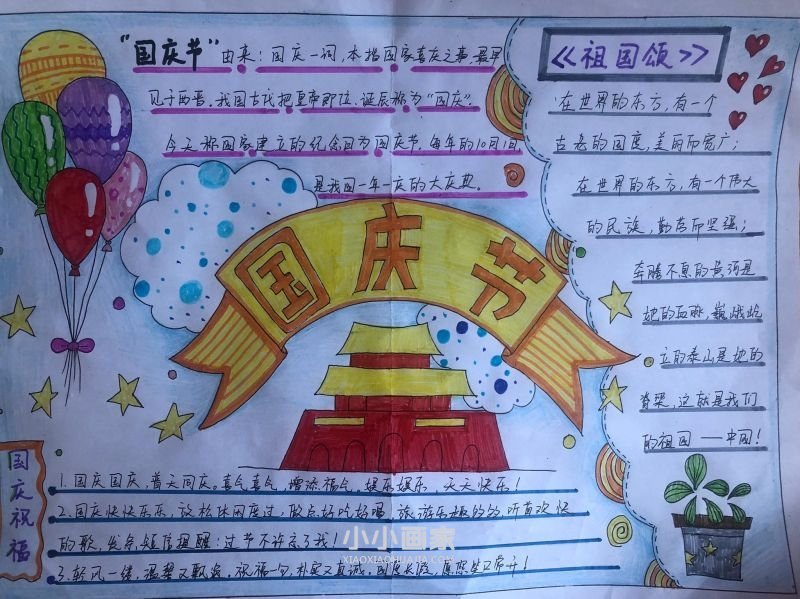 "国庆节"由来：国庆一词，本指国家喜庆之事，最早
见于西晋。我国古代把皇帝即位、诞辰称为"国庆"。
今天称国家建立的纪念日为国庆节，每年的10月1日
是我国一年一庆的大庆典。
国庆节
《祖国颂》
在世界的东方，有一个
古老的国度，美丽而宽广；
在世界的东方，有一个伟大
的民族，勤劳而坚强；
奔腾不息的黄河是
她的血脉，巍峨屹
立的泰山是她的
脊梁，这就是我们
的祖国——中国！
国庆祝福
1.国庆国庆，普天同庆。喜气喜气，增添福气。娱乐娱乐，天天快乐！
2.国庆快快乐乐，放松休闲度过，做点好吃好喝，旅游乐趣多多，听首欢快
的歌，发条短信提醒：过节不许忘了我！
3.轻风一缕，温馨又飘逸，祝福一句，朴实又真诚，国庆长假，愿您笑口常开！
小小画家
XIAOXIAOHUAJIA.COM